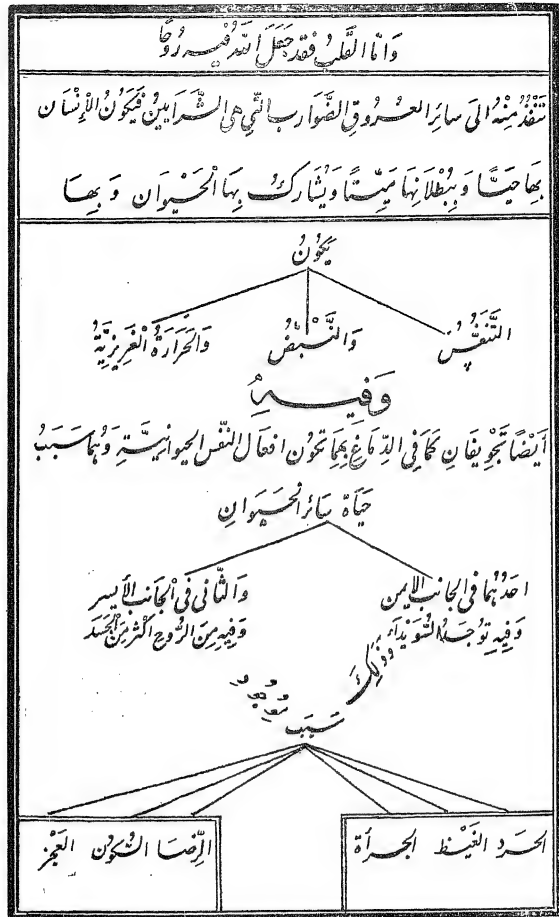 وَأَمَّا القَلْبُ فَقَد جَعَلَ اللّٰهُ فِيهِ رُوحًا
تَنْفُذُ مِنْهُ الَى سائِرِ العُرُوقِ الضَّوَارِبِ الَّتِي هِيَ الشَّرَايِينُ فَيَكُونُ الْإِنْسَان
بِهَا حَيًّا وَبِبُطْلَانِهَا مَيِّتًا وَيُشَارِكُ بِهَا الْحَيْوَان وَبِهَا
يَكُونُ
التَّنَفُّسُ وَالنَّبْضُ وَالحَرَارَةُ الْغَرِيزِيَّةُ
وَفِيهِ
أَيْضًا تَجْوِيفَانِ كَمَا فِي الدِّمَاغِ بِهِمَا تَكُون افعَال النَّفْسِ الحيوانِيَّةِ وَهُمَا سَبَبُ
حَيَاة سَائر الحَيَوَانِ
احَدُهُمَا فِي الجانب الايمن
وَفِيهِ تُوجَدُ السُّوَيْدَاءُ
وَالثَّانِى فِي الْجَانب الأَيسر
وَفِيهِ مِنَ الرُّوحِ اكْثَر مِنَ الجَسَد
وَذٰلِكَ سَبَب مَوْجُود
الحَرَد الغَيْظ الجرأة
الرِّضَا السُّكُون العَجْز